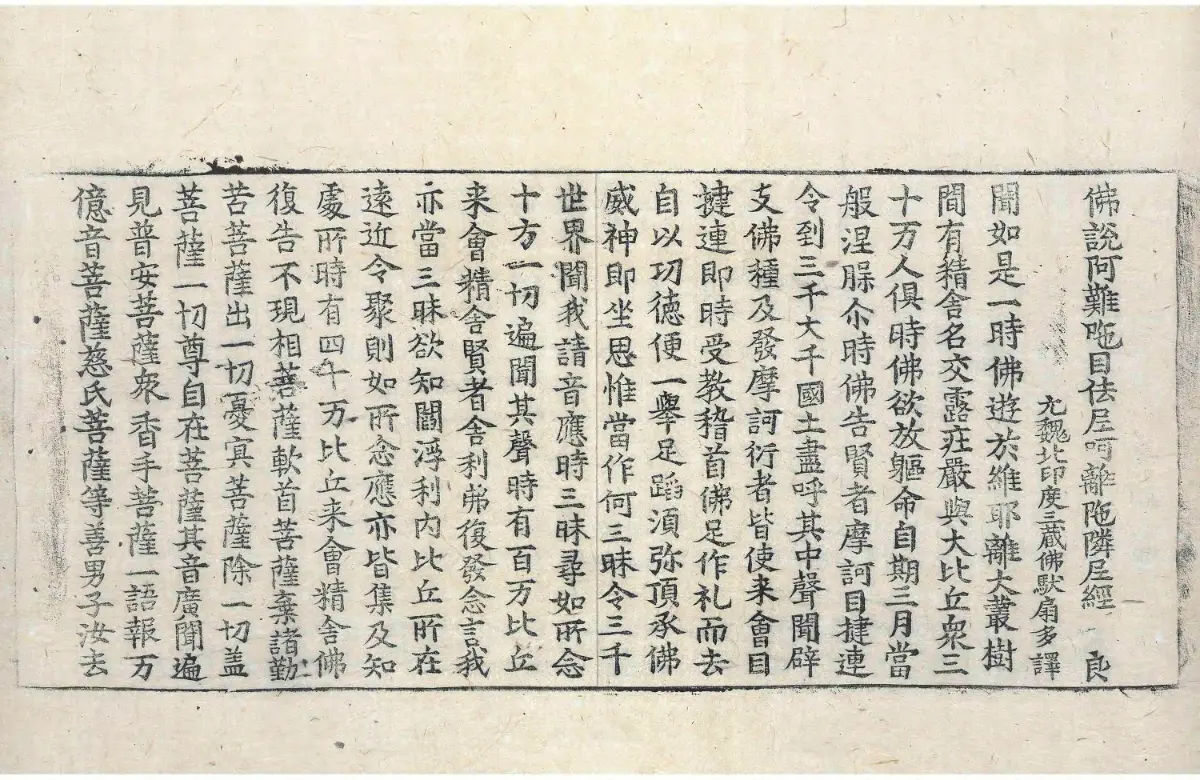 佛說阿難陁目佉尼呵離陁隣尼經 良
元魏北印度三藏佛馱扇多譯
聞如是一時佛遊於維耶離大叢樹
間有精舍名交露莊嚴與大比丘衆三
十万人俱時佛欲放軀命自期三月當
般涅臊尒時佛告賢者摩訶目揵連
令到三千大千國土盡呼其中聲聞辟
支佛種及發摩訶衍者皆使来會目
揵連即時受教稽首佛足作礼而去
自以功德便一舉足蹈湏弥頂承佛
威神即坐思惟當作何三昧令三千
世界聞我請音應時三昧尋如所念
十方一切遍聞其聲時有百万比丘
来會精舍賢者舍利弗復發念言我
亦當三昧欲知閻浮利內比丘所在
遠近令聚則如所念應亦皆集及知
處所時有四十万比丘来會精舍佛
復告不現相菩薩軟首菩薩棄諸勤
苦菩薩出一切憂冥菩薩除一切盖
菩薩一切尊自在菩薩其音廣聞遍
見普安菩薩衆香手菩薩一語報万
億音菩薩慈氏菩薩等善男子汝去